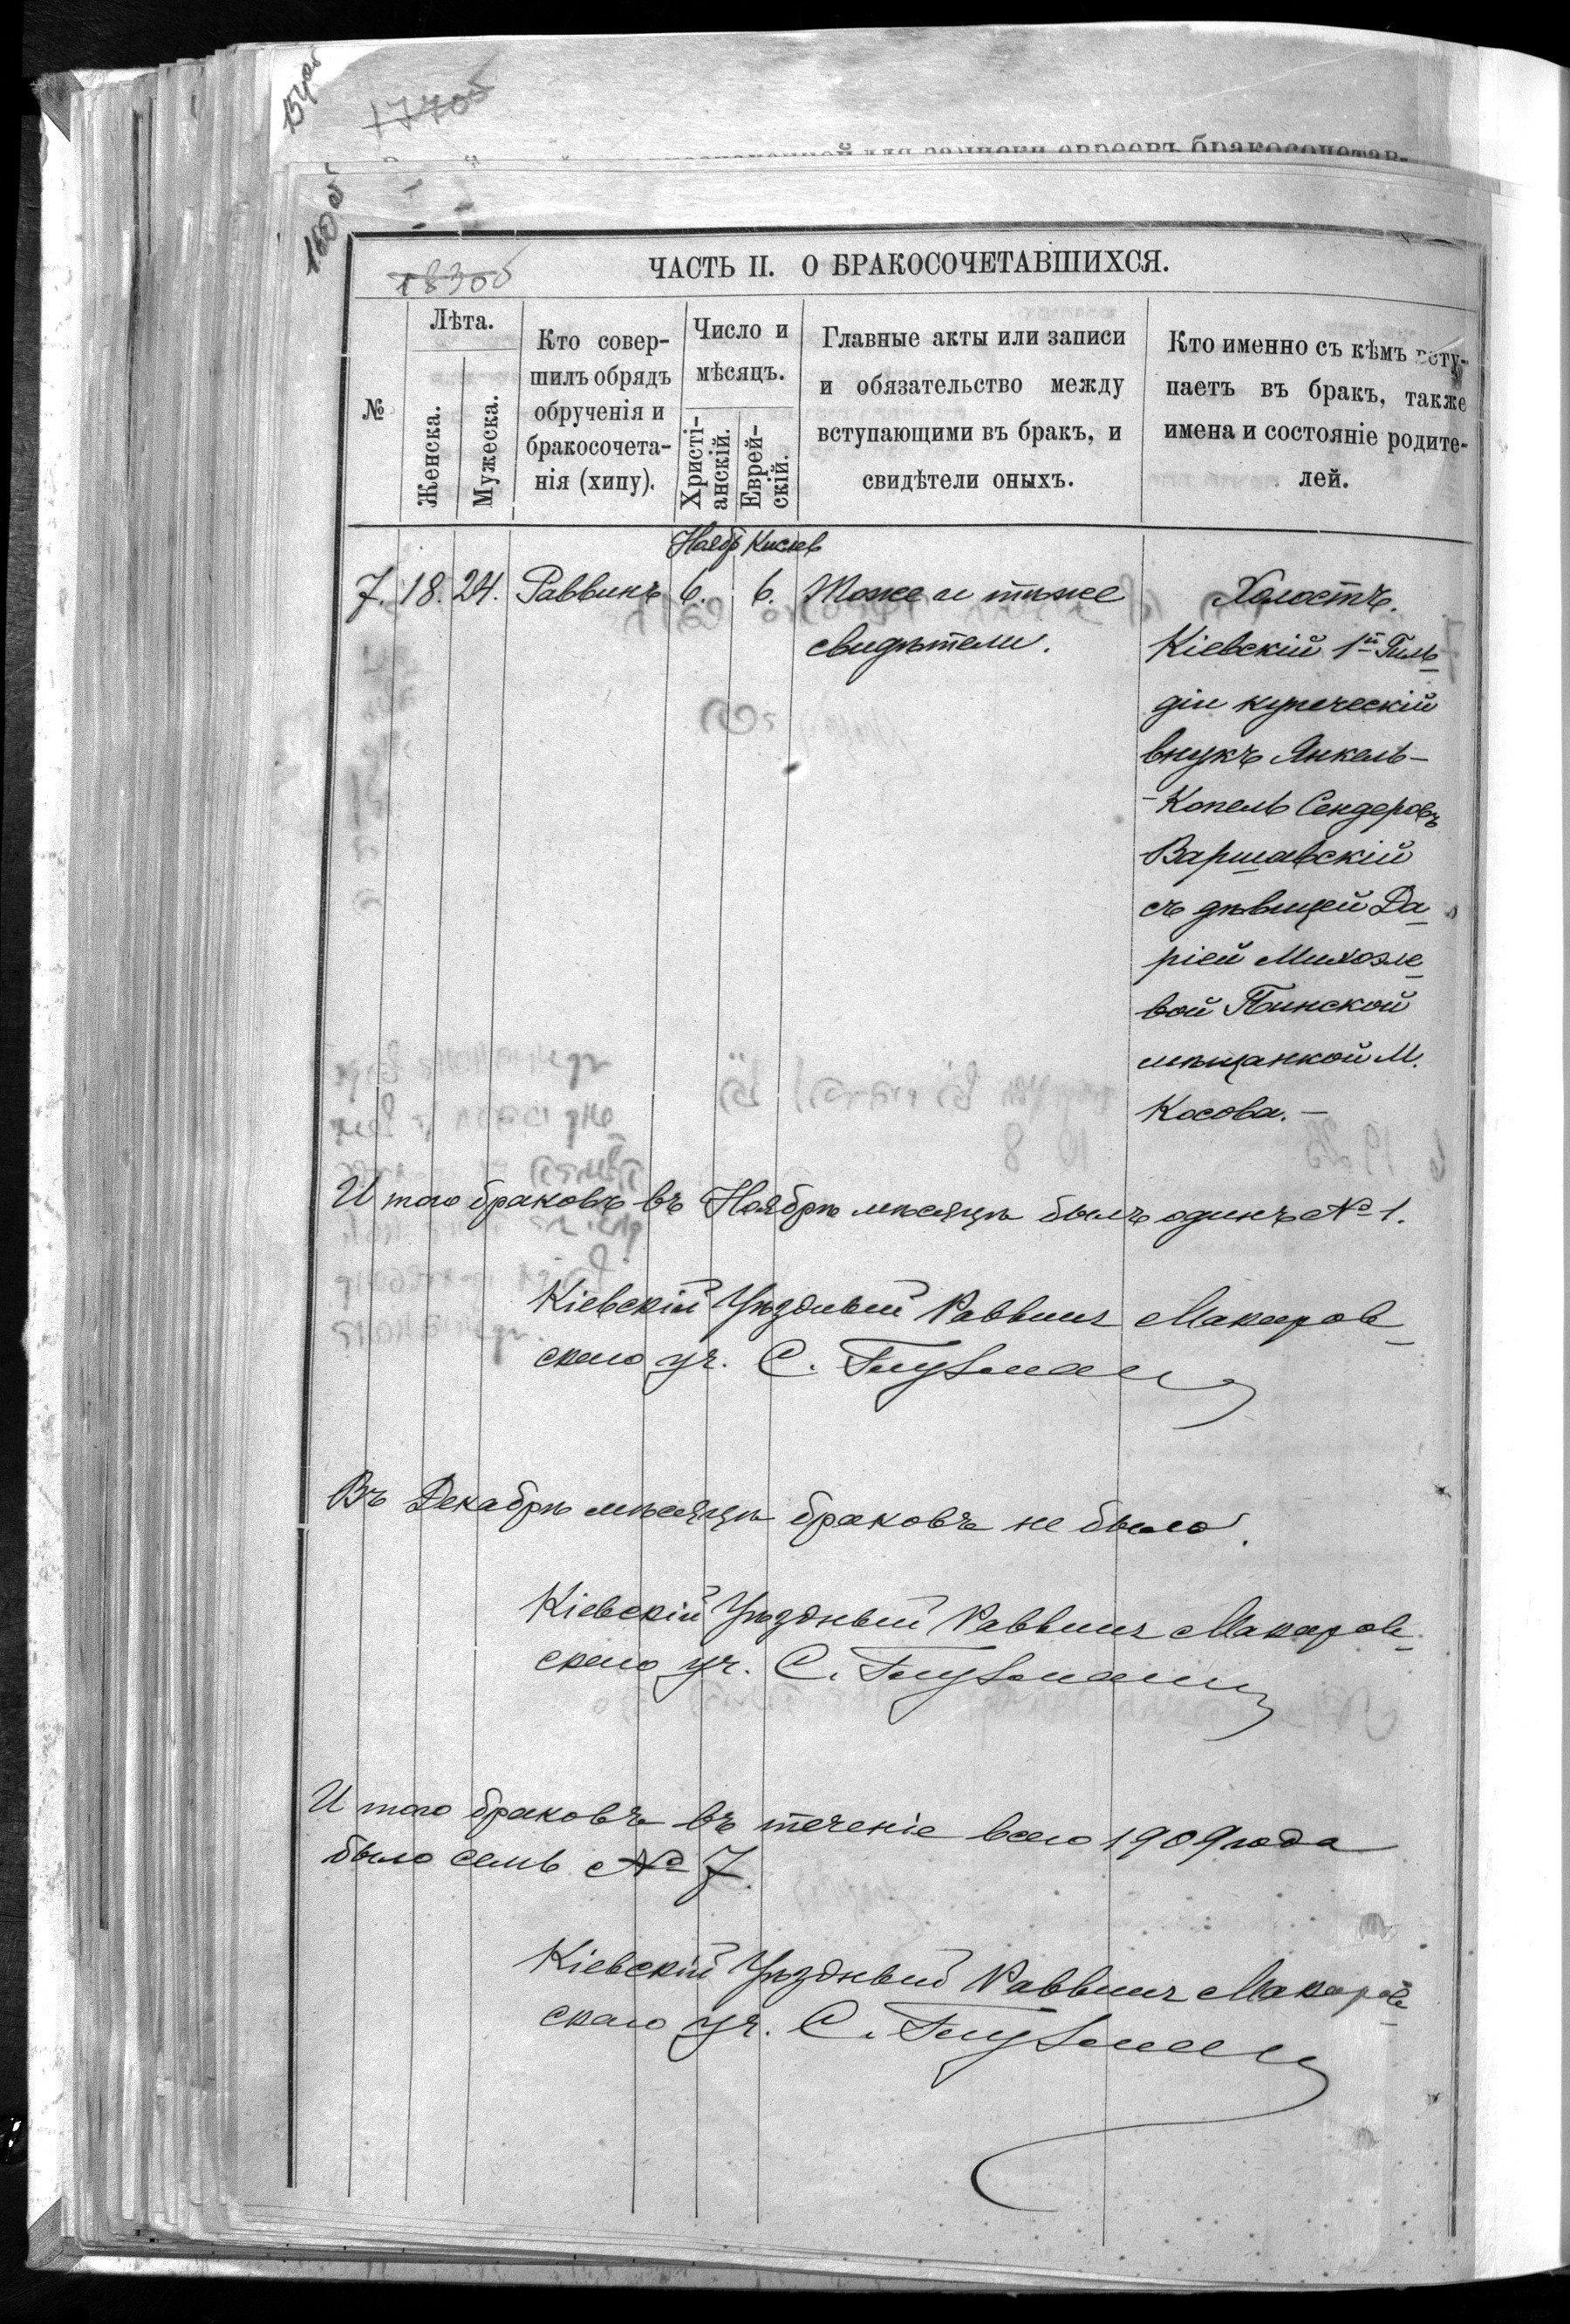 154об
177об
160об
183об
ЧАСТЬ II. О БРАКОСОЧЕТАВШИХСЯ.
№
Лѣта.
Женска.
Мужеска.
Кто совер-
шилъ обрядъ
обрученія и
бракосочета-
нія (хипу).
Число и
мѣсяцъ.
Христі-
анскій.
Еврей-
скій.
Главные акты или записи
и обязательство между
вступающими въ бракъ, и
свидѣтели оныхъ.
Кто именно съ кѣмъ всту-
паетъ въ бракъ, также
имена и состояніе родите-
лей.
Ноябр Кислев
7. 18. 24. Раввинъ 6. 6. Тоже и тѣже
свидѣтели.
Холостъ.
Кіевскій 1й Гиль-
діи купеческій
внукъ Янкель-
-Копель Сендеровъ
Варшавскій
съ дѣвицей Да-
ріей Михоэле-
вой Пинской
мѣщанкой М.
Косова. —
Итого браковъ въ Ноябрѣ мѣсяцѣ былъ одинъ № 1.
Кіевскій Уѣздный Раввинъ Макаров-
скаго уч. С.
Въ Декабрѣ мѣсяцѣ браковъ не было.
Кіевскій Уѣздный Раввинъ Макаров-
скаго уч. С.
Итого браковъ въ теченіе всего 1909 года
было семь № 7.
Кіевскій Уѣздный Раввинъ Макаров-
скаго уч. С.